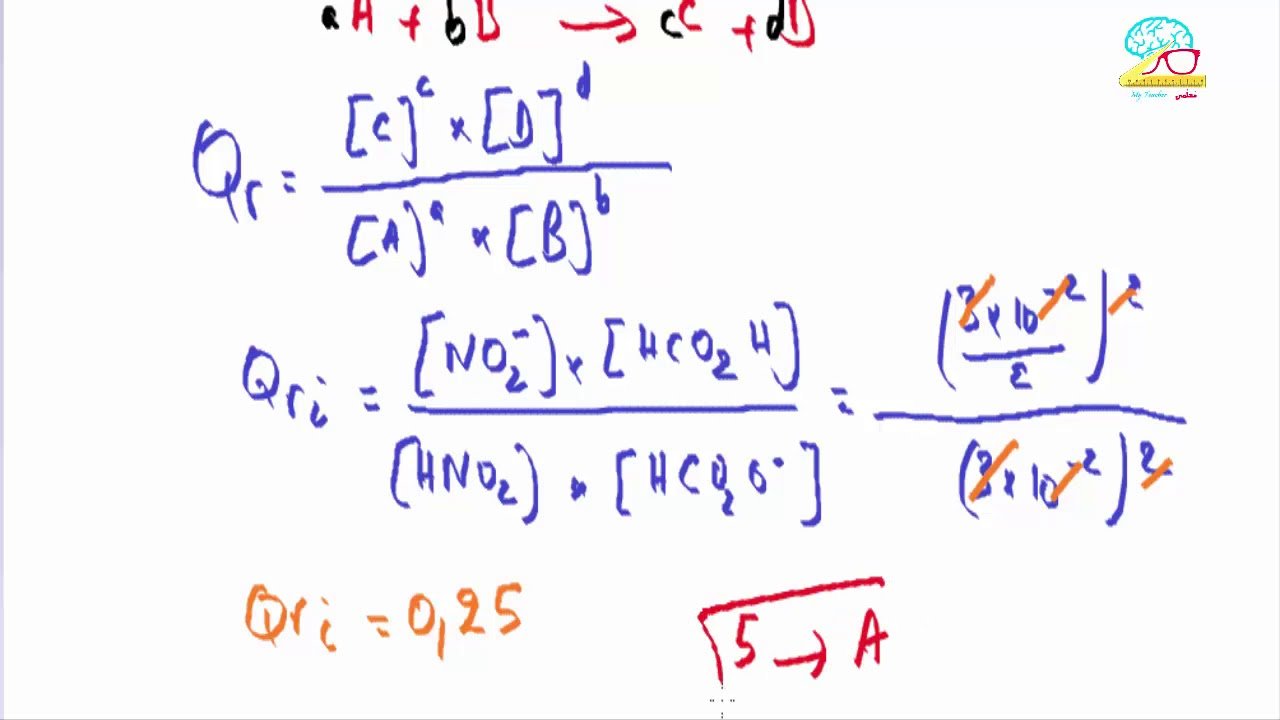 aA + bB → cC + dD
My Teacher معلمي
Qr = [C]^c × [D]^d / [A]^a × [B]^b
Qri = [NO₂⁻] × [HCO₂H] / [HNO₂] × [HCO₂O⁻] = (3×10⁻² / 2)² / (3×10⁻²)²
Qri = 0,25
5 → A